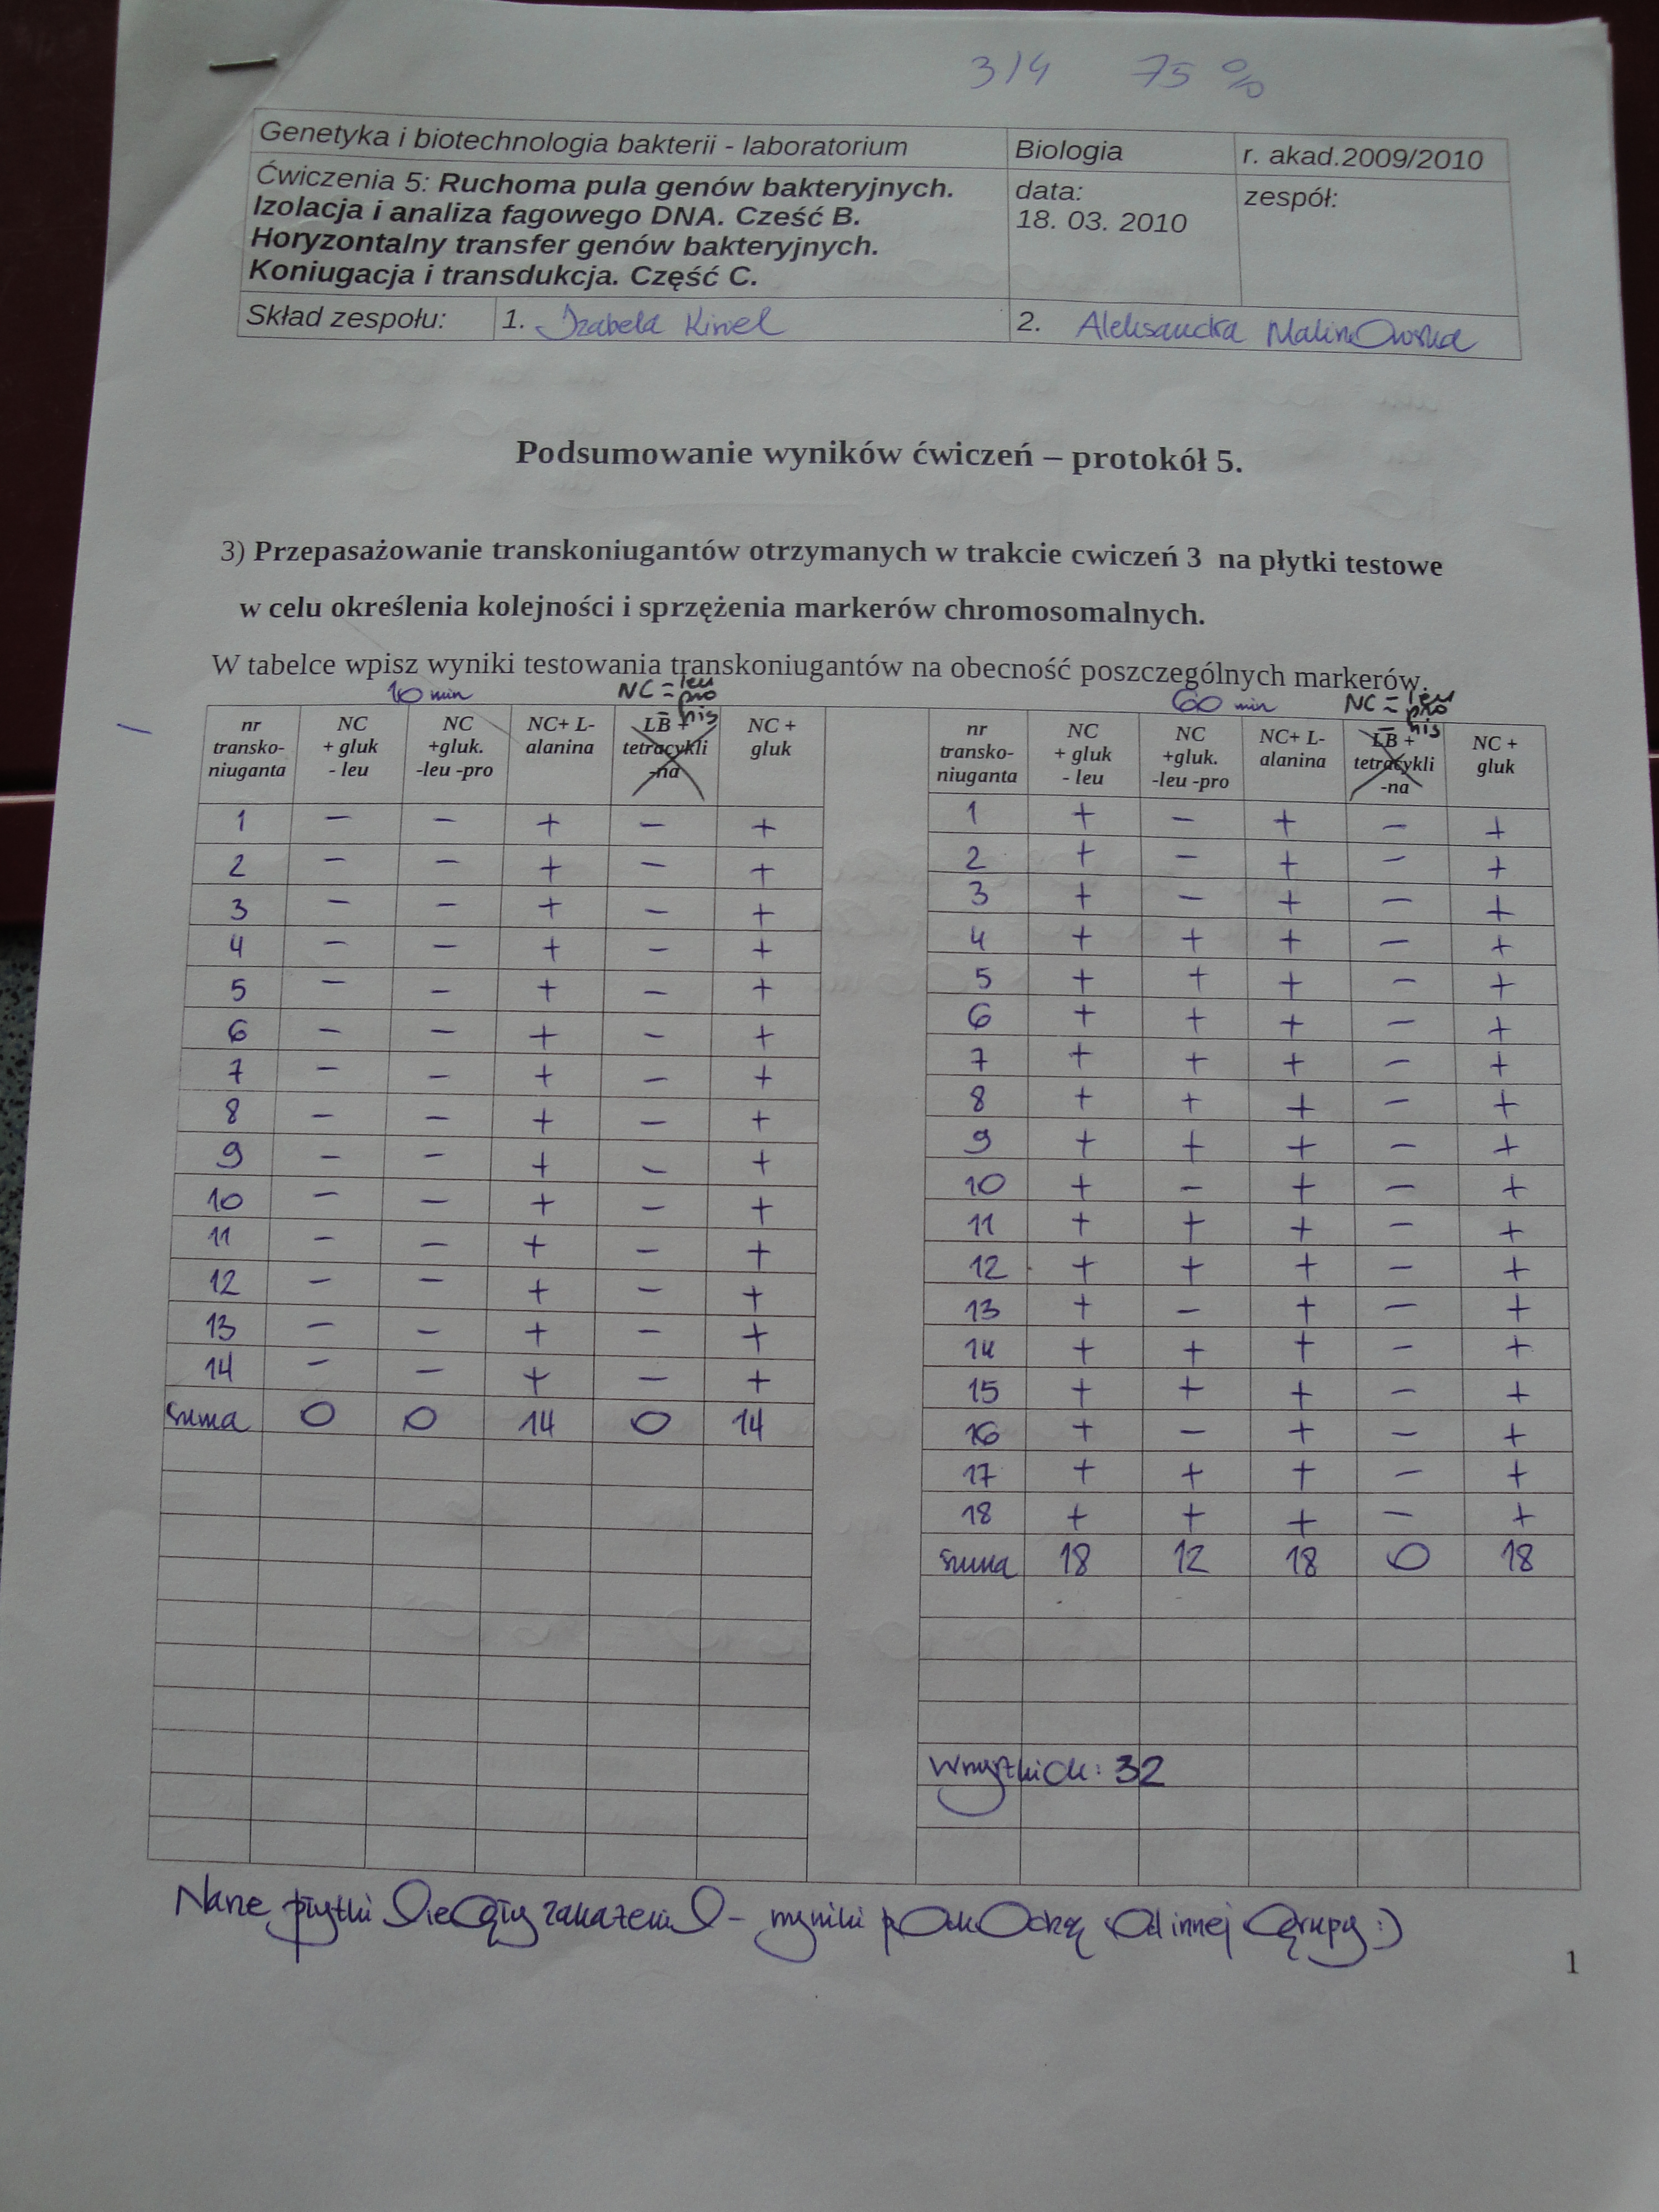 3/4 75 %
Genetyka i biotechnologia bakterii - laboratorium Biologia r. akad.2009/2010
Ćwiczenia 5: Ruchoma pula genów bakteryjnych. data: zespół:
Izolacja i analiza fagowego DNA. Cześć B. 18. 03. 2010
Horyzontalny transfer genów bakteryjnych.
Koniugacja i transdukcja. Część C.
Skład zespołu: 1. Izabela Kisiel 2. Aleksandra Malinowska
Podsumowanie wyników ćwiczeń – protokół 5.
3) Przepasażowanie transkoniugantów otrzymanych w trakcie cwiczeń 3 na płytki testowe
w celu określenia kolejności i sprzężenia markerów chromosomalnych.
W tabelce wpisz wyniki testowania transkoniugantów na obecność poszczególnych markerów.
10 min NC = leu pro his 60 min NC = leu pro his
nr transko-niuganta NC + gluk - leu NC +gluk. -leu -pro NC+ L-alanina LB + tetracykli -na NC + gluk nr transko-niuganta NC + gluk - leu NC +gluk. -leu -pro NC+ L-alanina LB + tetracykli -na NC + gluk
1 – – + – + 1 + – + – +
2 – – + – + 2 + – + – +
3 – – + – + 3 + – + – +
4 – – + – + 4 + + + – +
5 – – + – + 5 + + + – +
6 – – + – + 6 + + + – +
7 – – + – + 7 + + + – +
8 – – + – + 8 + + + – +
9 – – + – + 9 + + + – +
10 – – + – + 10 + – + – +
11 – – + – + 11 + + + – +
12 – – + – + 12 + + + – +
13 – – + – + 13 + – + – +
14 – – + – + 14 + + + – +
suma 0 0 14 0 14 15 + + + – +
16 + – + – +
17 + + + – +
18 + + + – +
suma 18 12 18 0 18
Wszystkich: 32
Nasze płytki uległy zakażeniu – wyniki pochodzą od innej grupy :)
1